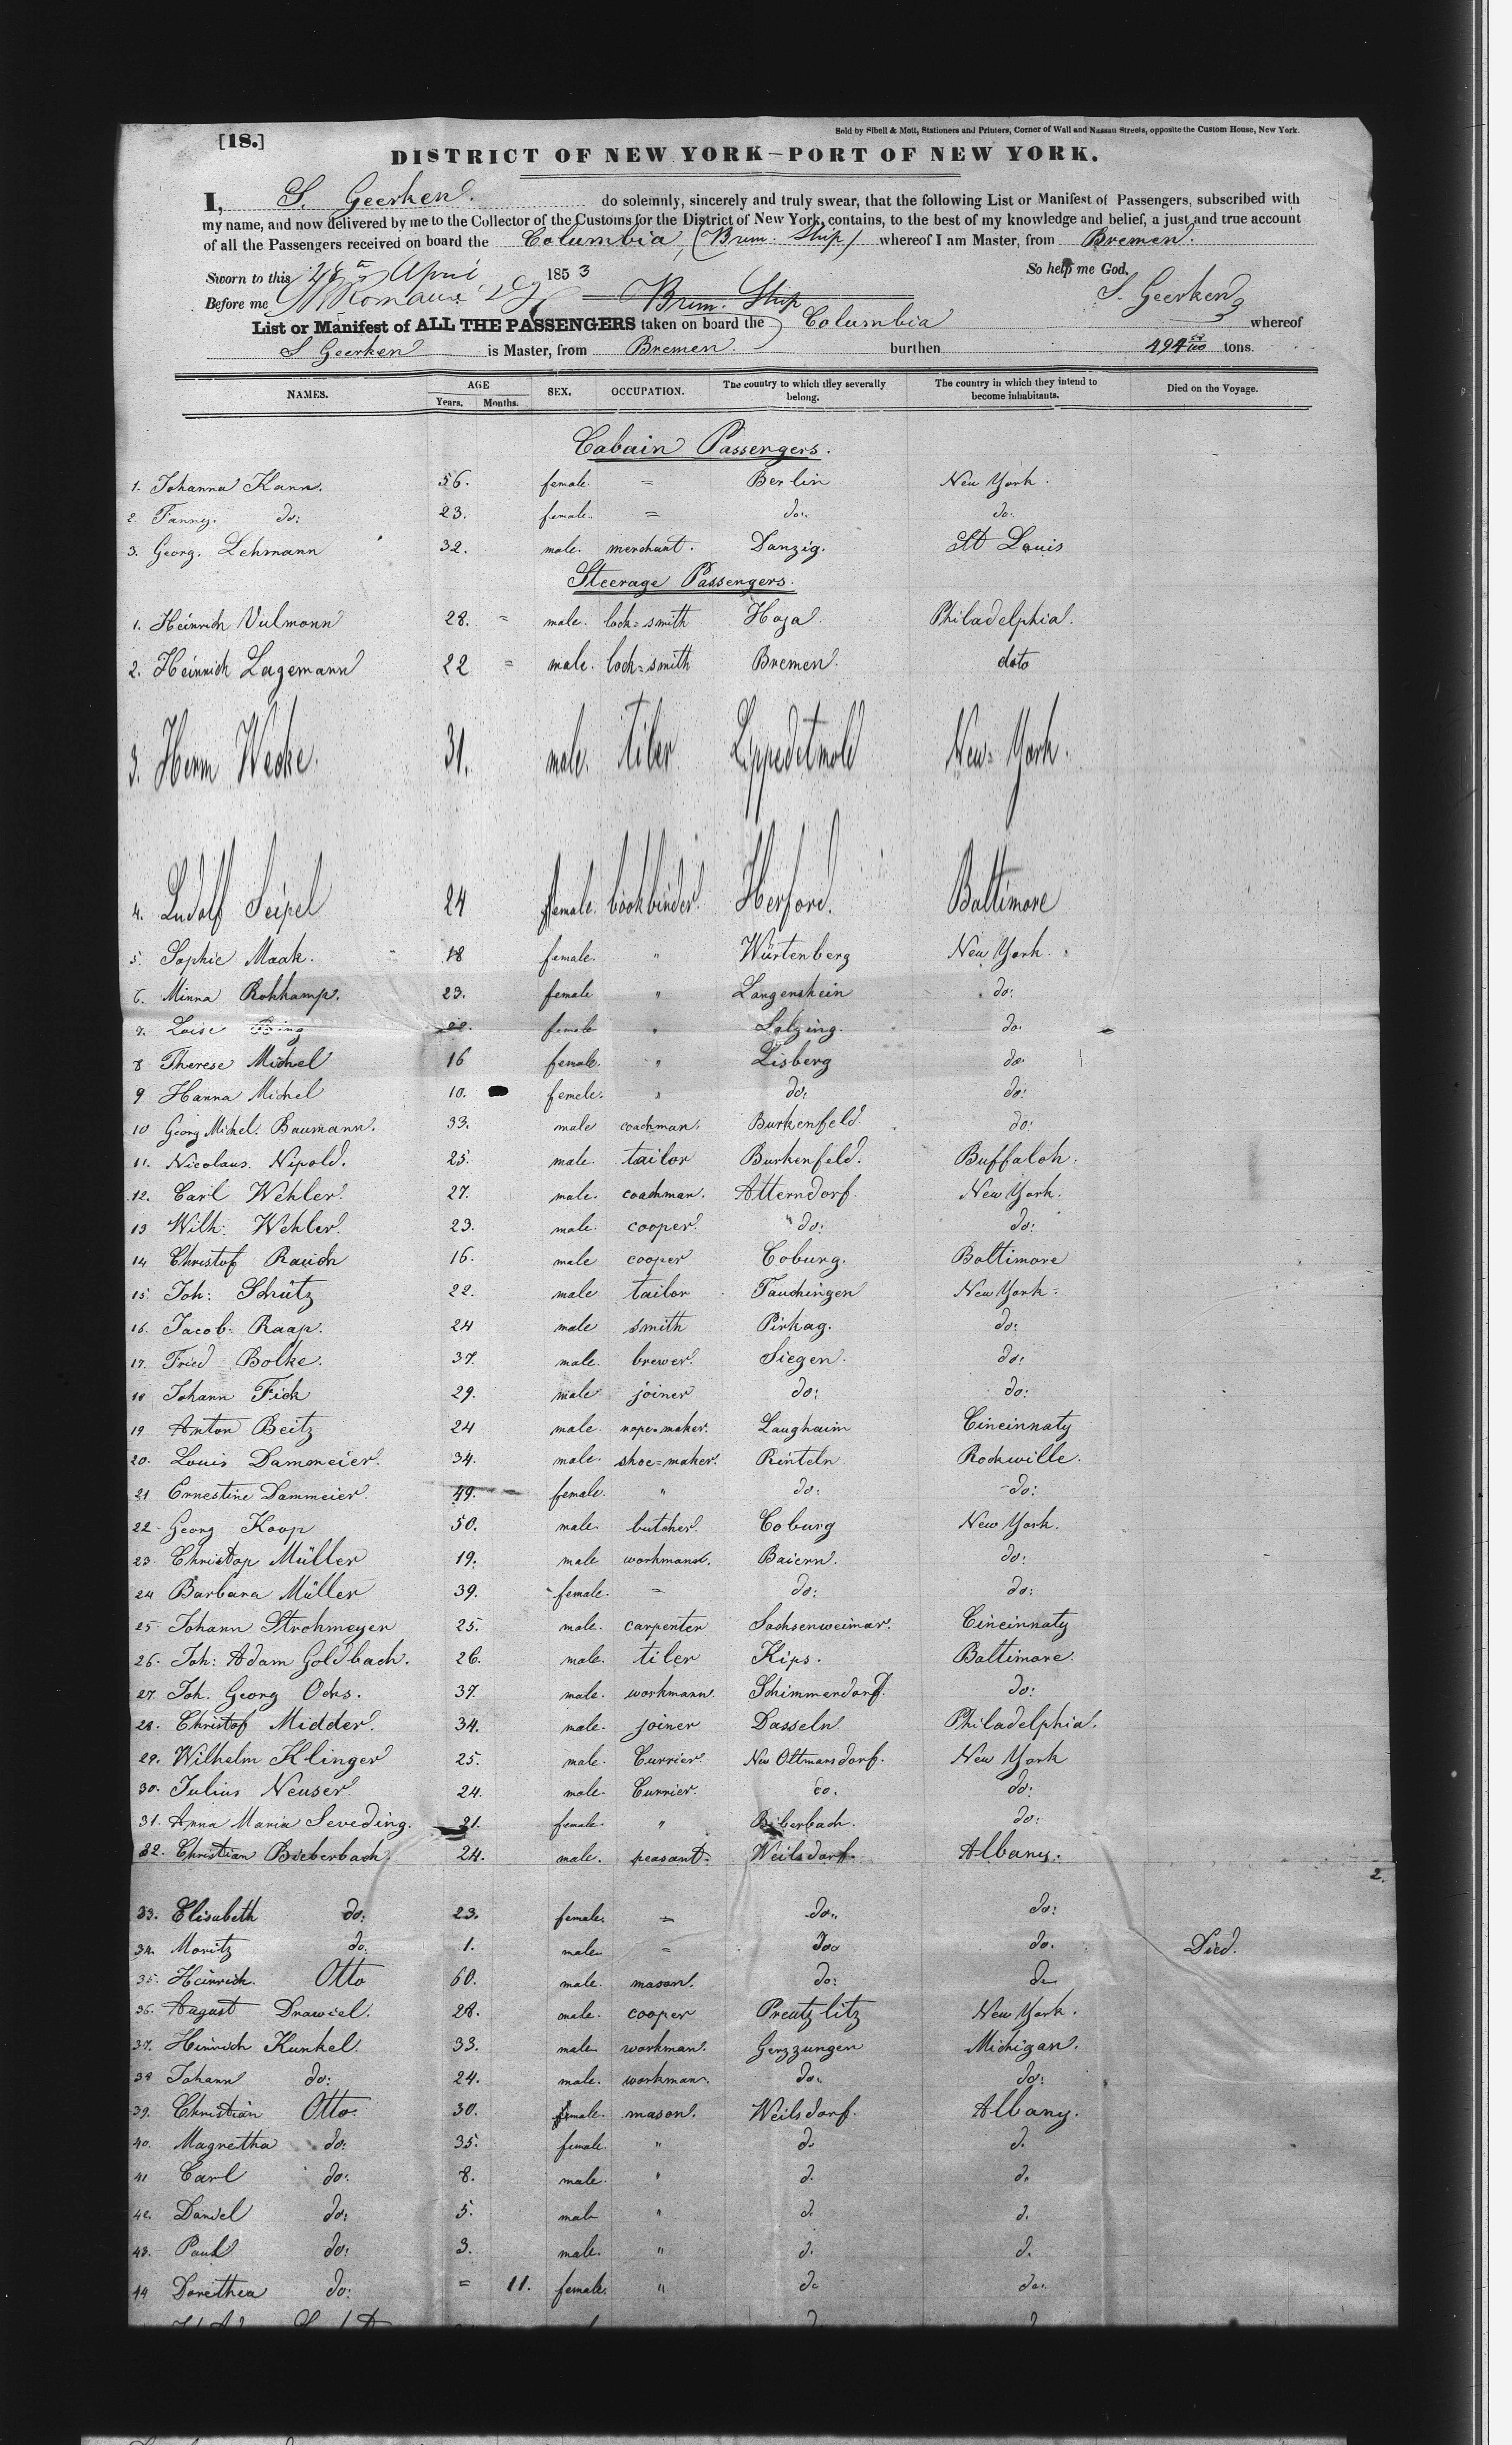 [18.]
Sold by Sibell & Mott, Stationers and Printers, Corner of Wall and Nassau Streets, opposite the Custom House, New York.
DISTRICT OF NEW YORK—PORT OF NEW YORK.
I, S. Geerken. do solemnly, sincerely and truly swear, that the following List or Manifest of Passengers, subscribed with
my name, and now delivered by me to the Collector of the Customs for the District of New York, contains, to the best of my knowledge and belief, a just and true account
of all the Passengers received on board the Columbia, (Brem. Ship) whereof I am Master, from Bremen.
Sworn to this 28th April 1853 So help me God.
Before me Brem. Ship S. Geerken
List or Manifest of ALL THE PASSENGERS taken on board the Columbia whereof
S Geerken is Master, from Bremen. burthen 494 tons.
NAMES. AGE Years. Months. SEX. OCCUPATION. The country to which they severally belong. The country in which they intend to become inhabitants. Died on the Voyage.
Cabain Passengers.
1. Johanna Kann. 56. female. = Berlin New York.
2. Fanny. do: 23. female. = do. do.
3. Georg. Lehmann 32. male. merchant. Danzig. St Louis
Steerage Passengers.
1. Heinrich Vulmonn 28. = male. lock=smith Hoja. Philadelphia.
2. Heinrich Lagemann 22 = male. lock=smith Bremen. doto
3. Herm Wecke. 31. male. tiler Lippedetmold New=York.
4. Ludolf Seipel 24 male. bookbinder. Herford. Baltimore
5. Sophie Maak. 18 female. " Würtenberg New York.
6. Minna Rohkamp. 23. female " Langenshein do:
7. Loise female " Salzing. do.
8 Therese Michel 16 female. " Lisberg do.
9 Hanna Michel 10. female. " do. do:
10 Georg Michel. Baumann. 33. male coachman. Burkenfeld. do:
11. Nicolaus. Nipold. 25. male. tailor Burkenfeld. Buffaloh.
12. Carl Wehler. 27. male. coachman. Atterndorf. New York.
13 Wilh: Wehler. 23. male. cooper. " do: do:
14 Christof Rauch 16. male cooper Coburg. Baltimore
15. Joh: Schütz 22. male tailor Tauchingen New York.
16. Jacob. Raap. 24 male smith Pirkag. do:
17. Fried Bolke. 37. male. brewer. Siegen. do:
18 Johann Fick 29. male joiner do: do:
19 Anton Beitz 24 male. rope=maker. Laughaim Cincinnaty
20. Louis Dammeier. 34. male. shoe=maker. Rinteln Rockwille.
21 Ernestine Dammeier. 49. female. " do: do:
22. Georg Koop 50. male. butcher. Coburg New York.
23. Christop Müller 19. male workmann. Baiern. do:
24 Barbara Müller 39. female. = do: do:
25 Johann Strohmeyer 25. male. carpenter Sachsenweimar. Cincinnaty
26. Joh: Adam Goldbach. 26. male. tiler Kips. Baltimore.
27. Joh. Georg Ochs. 37. male. workmann. Schimmerdorf. do:
28. Christof Midder. 34. male. joiner Dasseln. Philadelphia.
29. Wilhelm Klinger 25. male. Currier. New Ottmansdorf. New York
30. Julius Neuser. 24. male. Currier. do. do:
31. Anna Maria Seveding. 21. female. " Biberbach. do:
32. Christian Bieberbach 24. male. peasant. Weilsdorf. Albany.
2.
33. Elisabeth do: 23. female. = do. do:
34. Moritz do: 1. male = do. do. Died.
35. Heinrich. Otto 60. male. mason. do: do
36. August Drawiel. 28. male. cooper Preutzlitz New York.
37. Heinrich Kunkel. 33. male workman. Gerzzungen Michigan.
38 Johann do: 24. male. workman. do. do:
39. Christian Otto. 30. male. mason. Weilsdorf. Albany.
40. Magretha do: 35. female. " d. d.
41 Carl do: 8. male. " d. d.
42. Daniel do: 5. male " d. d.
43. Paul do: 3. male. " d. d.
44 Dorethea do: = 11. female. " do do.